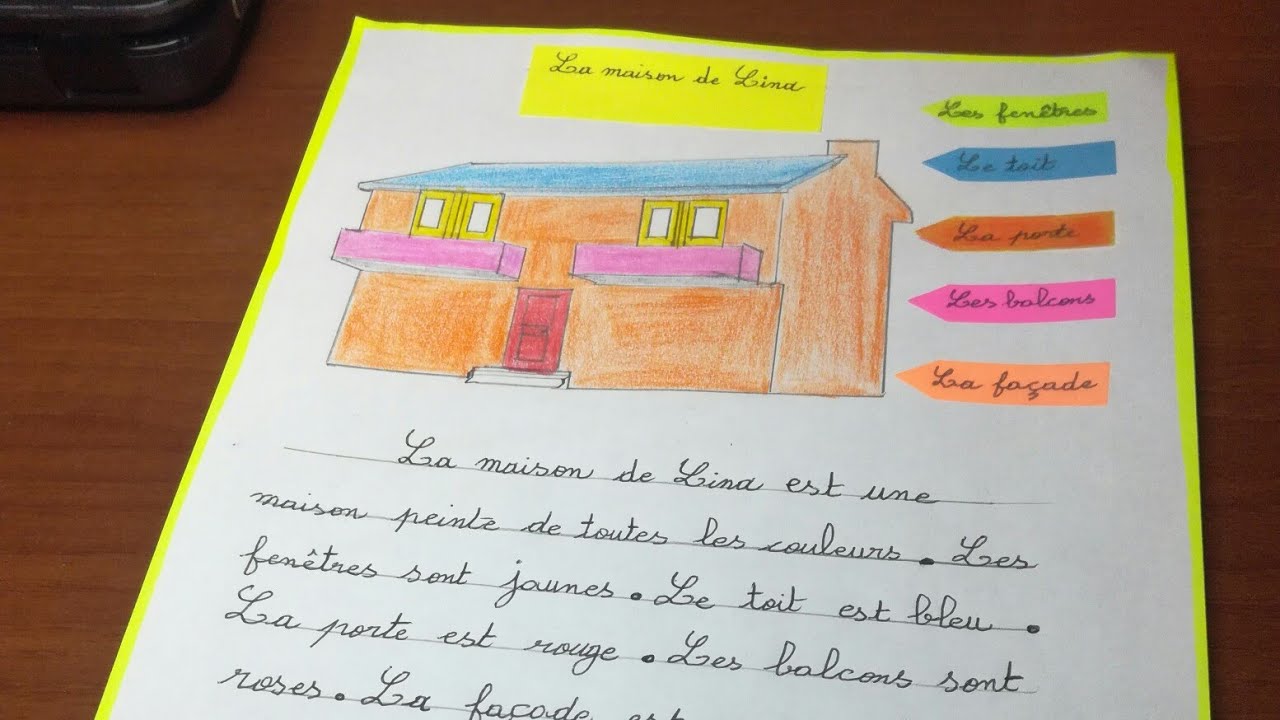 La maison de Lina
Les fenêtres
Le toit
La porte
Les balcons
La façade
La maison de Lina est une
maison peinte de toutes les couleurs. Les
fenêtres sont jaunes. Le toit est bleu.
La porte est rouge. Les balcons sont
roses. La façade est